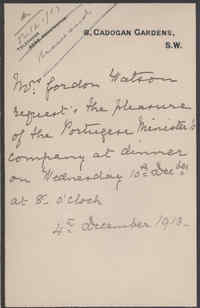 8, CADOGAN GARDENS,
S.W.
Mrs. Gordon Watson
request's the pleasure
of the Portugese Minister's
company at dinner
on Wednesday 10th Decber
at 8- o'clock
4th December 1913-